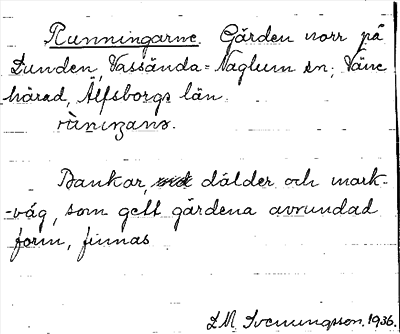 Runningarne. Gärden norr på
Lunden, Vassända-Naglum sn; Väne
härad, Älfsborgs län.
Bankar, dälder och mark-
-våg, som gett gärdena avrundad
form, finnas
L M Svenungsson. 1936.